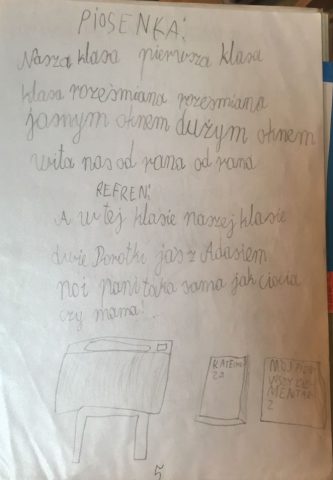 PIOSENKA:
Nasza klasa pierwsza klasa
klasa roześmiana roześmiana
jasnym oknem dużym oknem
wita nas od rana od rana
REFREN:
A w tej klasie naszej klasie
dwie Dorotki jaś z Adasiem
no i pani taka sama jak ciocia
czy mama!
KATECHI
ZM
MÓJ PIER
WSZY ELE
MENTARZ
2
5